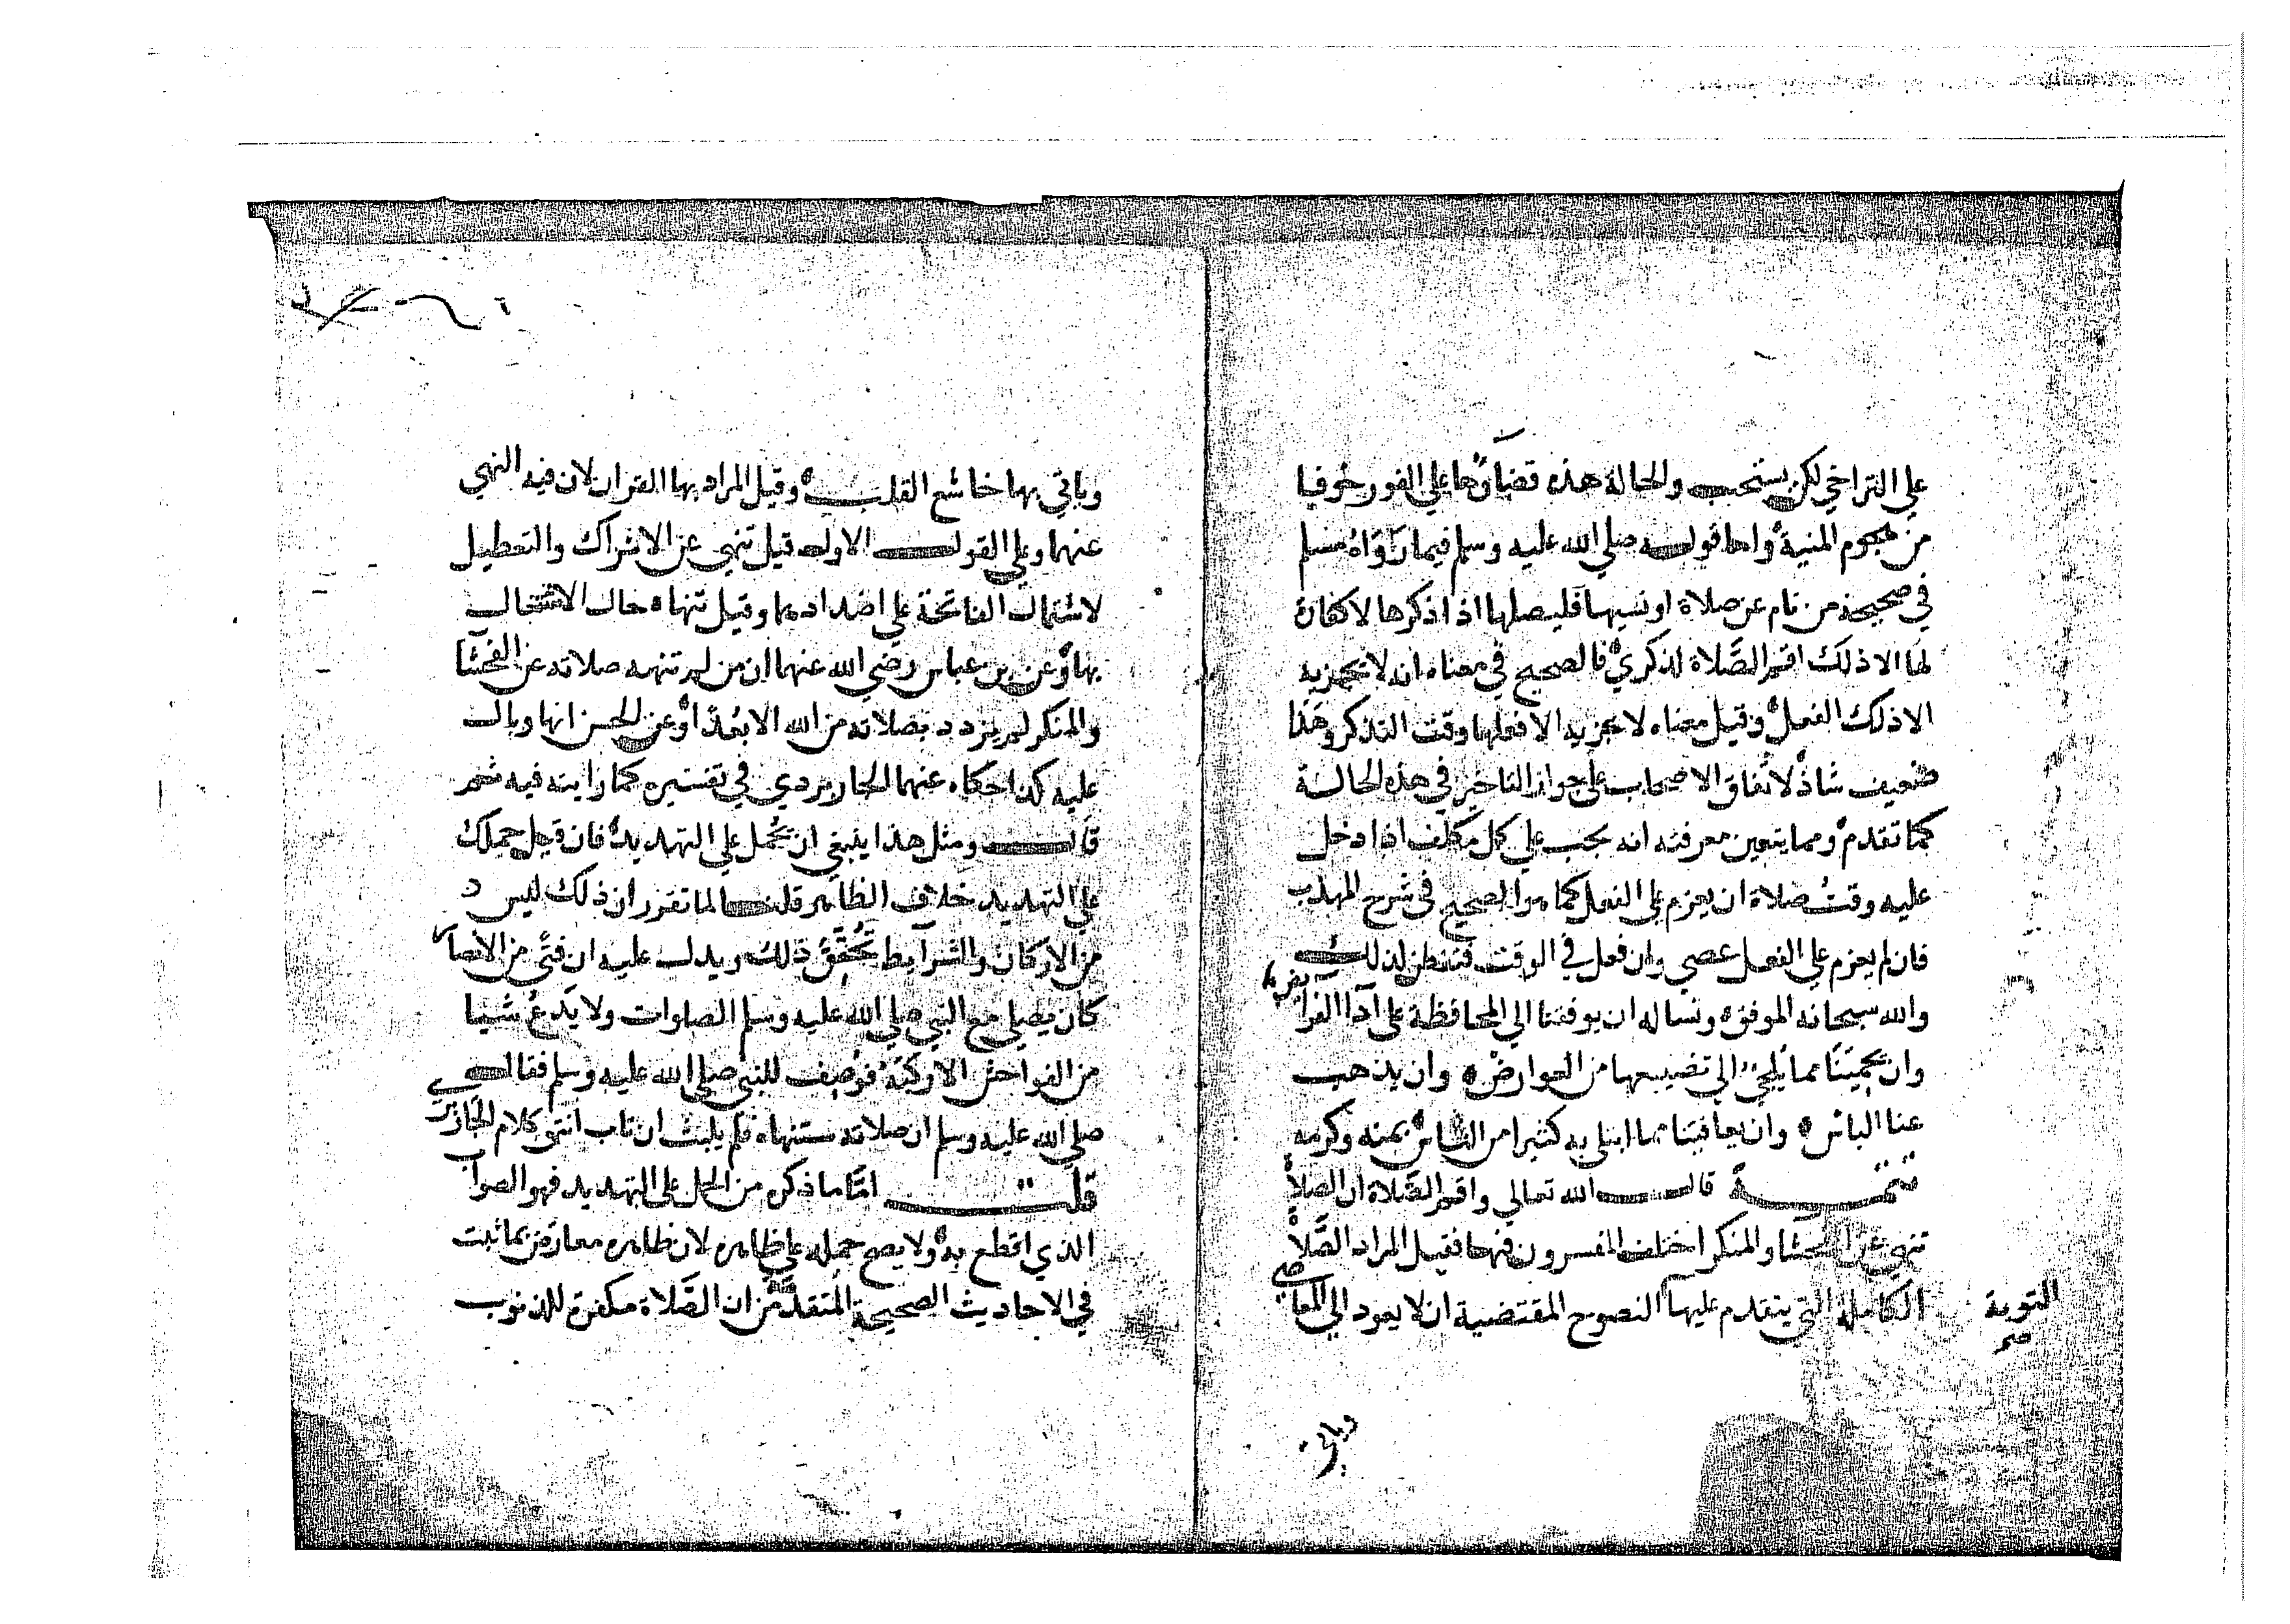 علي التراخي لكن يستحب والحالة هذه قضاؤها علي الفور خوفا
من هجوم المنية واما قوله صلي الله عليه وسلم فيما رواه مسلم
في صحيحه من نام عن صلاة او نسيها فليصلها اذا ذكرها لا كفارة
لها الا ذلك اقم الصلاة لذكري فالصحيح في معناه انه لا يجزيه
الا ذلك الفعل وقيل معناه لا يجزيه الا فعلها وقت التذكر وهذا
ضعيف شاذ لاتفاق الاصحاب علي جواز التاخير في هذه الحالة
كما تقدم ومما يتعين معرفته انه يجب علي كل مكلف اذا دخل
عليه وقت صلاة ان يعزم علي الفعل كما هو الصحيح في شرح المهذب
فان لم يعزم علي الفعل عصي وان فعل في الوقت فتفطن لذلك
والله سبحانه الموفق ونساله ان يوفقنا الي المحافظة علي ادا الفرايض
وان يحمينا مما يلجئ الي تضييعها من العوارض وان يذهب
عنا الباس وان يعافينا مما ابتلي به كثيرا من الناس بمنه وكرمه
تتمة قال الله تعالي واقم الصلاة ان الصلاة
تنهي عن الفحشا والمنكر اختلف المفسرون فيها فقيل المراد الصلاة
الكاملة التي يتقدم عليها النصوح المقتضية ان لا يعود الي المعاصي
التوبة صح
وياتي
وياتي بها خاشع القلب وقيل المراد بها القران لان فيه النهي
عنهما وعلي القول الاول قيل تنهي عن الاشراك والتعطيل
لاشتمال الفاتحة علي اضدادهما وقيل تنهاه حال الاشتغال
بها وعن بن عباس رضي الله عنهما ان من لم تنهه صلاته عن الفحشا
والمنكر لم يزدد بصلاته من الله الا بعدا وعن الحسن انها وبال
عليه كذا حكاه عنهما الجاربردي في تفسيره كما رايته فيه ثم
قال ومثل هذا ينبغي ان يحمل علي التهديد فان قيل حملك
علي التهديد خلاف الظاهر قلنا لما تقرر ان ذلك ليس
من الاركان والشرايط تحقق ذلك ويدل عليه ان فتي من الانصار
كان يصلي مع النبي صلي الله عليه وسلم الصلوات ولا يدع شيا
من الفواحش الا ركبه فوصف للنبي صلي الله عليه وسلم فقال
صلي الله عليه وسلم ان صلاته ستنهاه فلم يلبث ان تاب انتهي كلام الجاربردي
قلت اما ما ذكره من الحمل علي التهديد فهو الصواب
الذي اقطع به ولا يصح حمله علي ظاهره لان ظاهره معارض بما ثبت
في الاحاديث الصحيحة المتقدمة من ان الصلاة مكفرة للذنوب